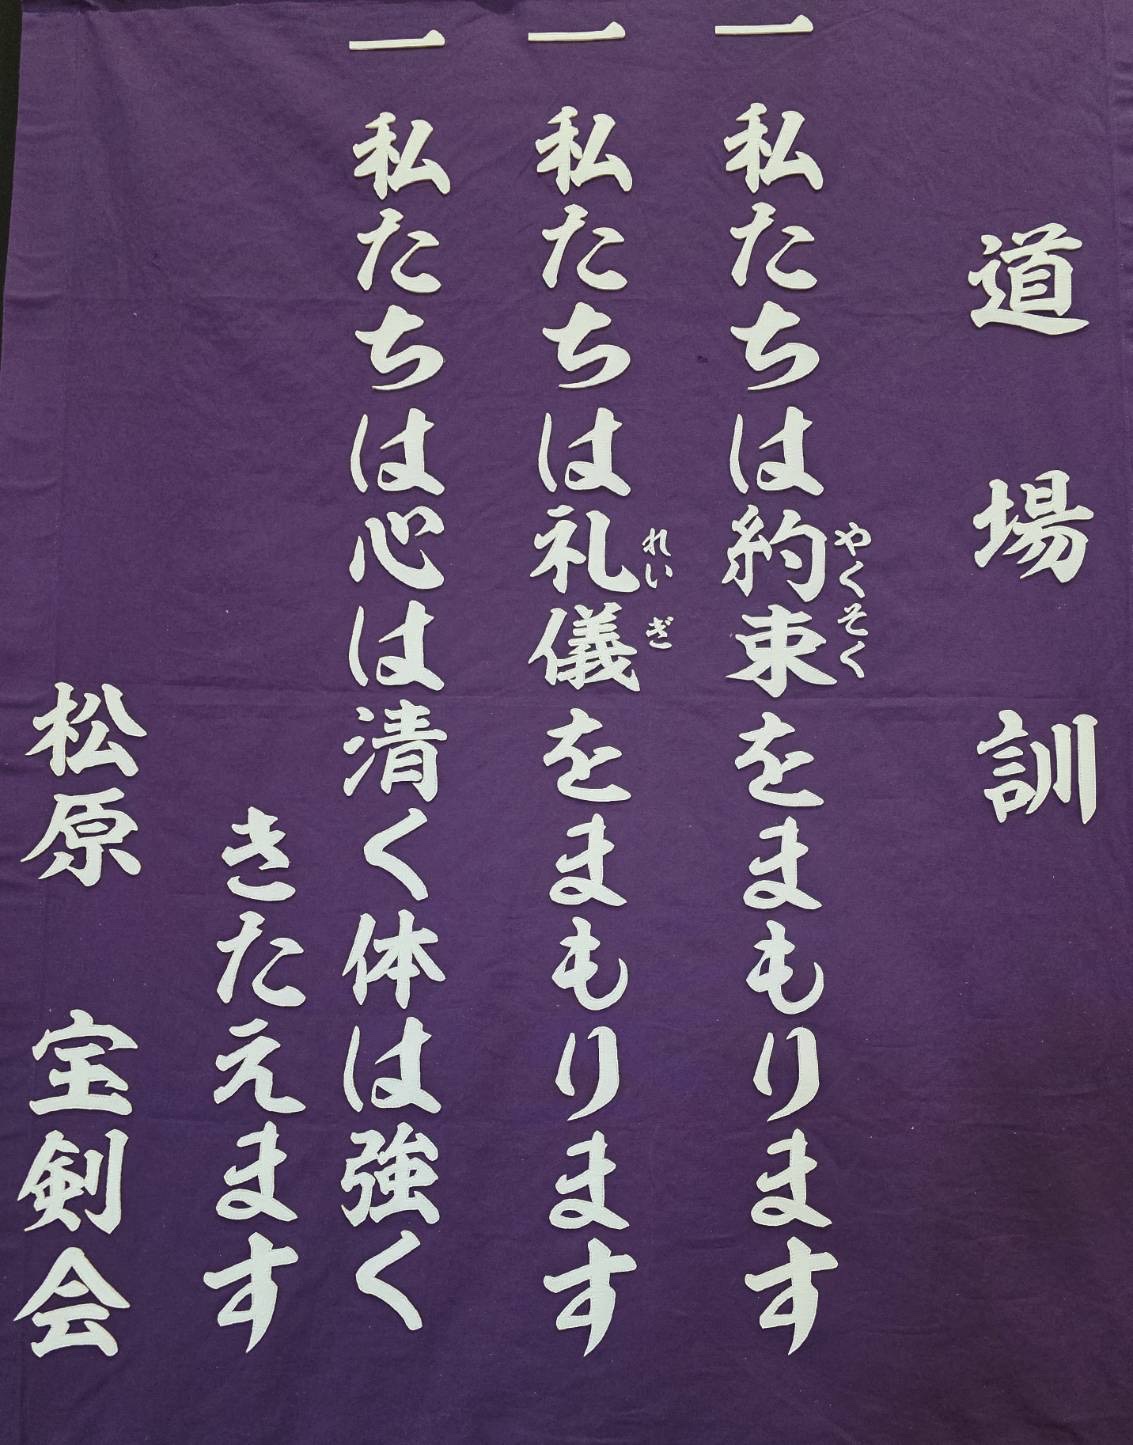 道場訓
一 私たちは約束をまもります
やくそく
一 私たちは礼儀をまもります
れいぎ
一 私たちは心は清く体は強く
きたえます
松原 宝剣会